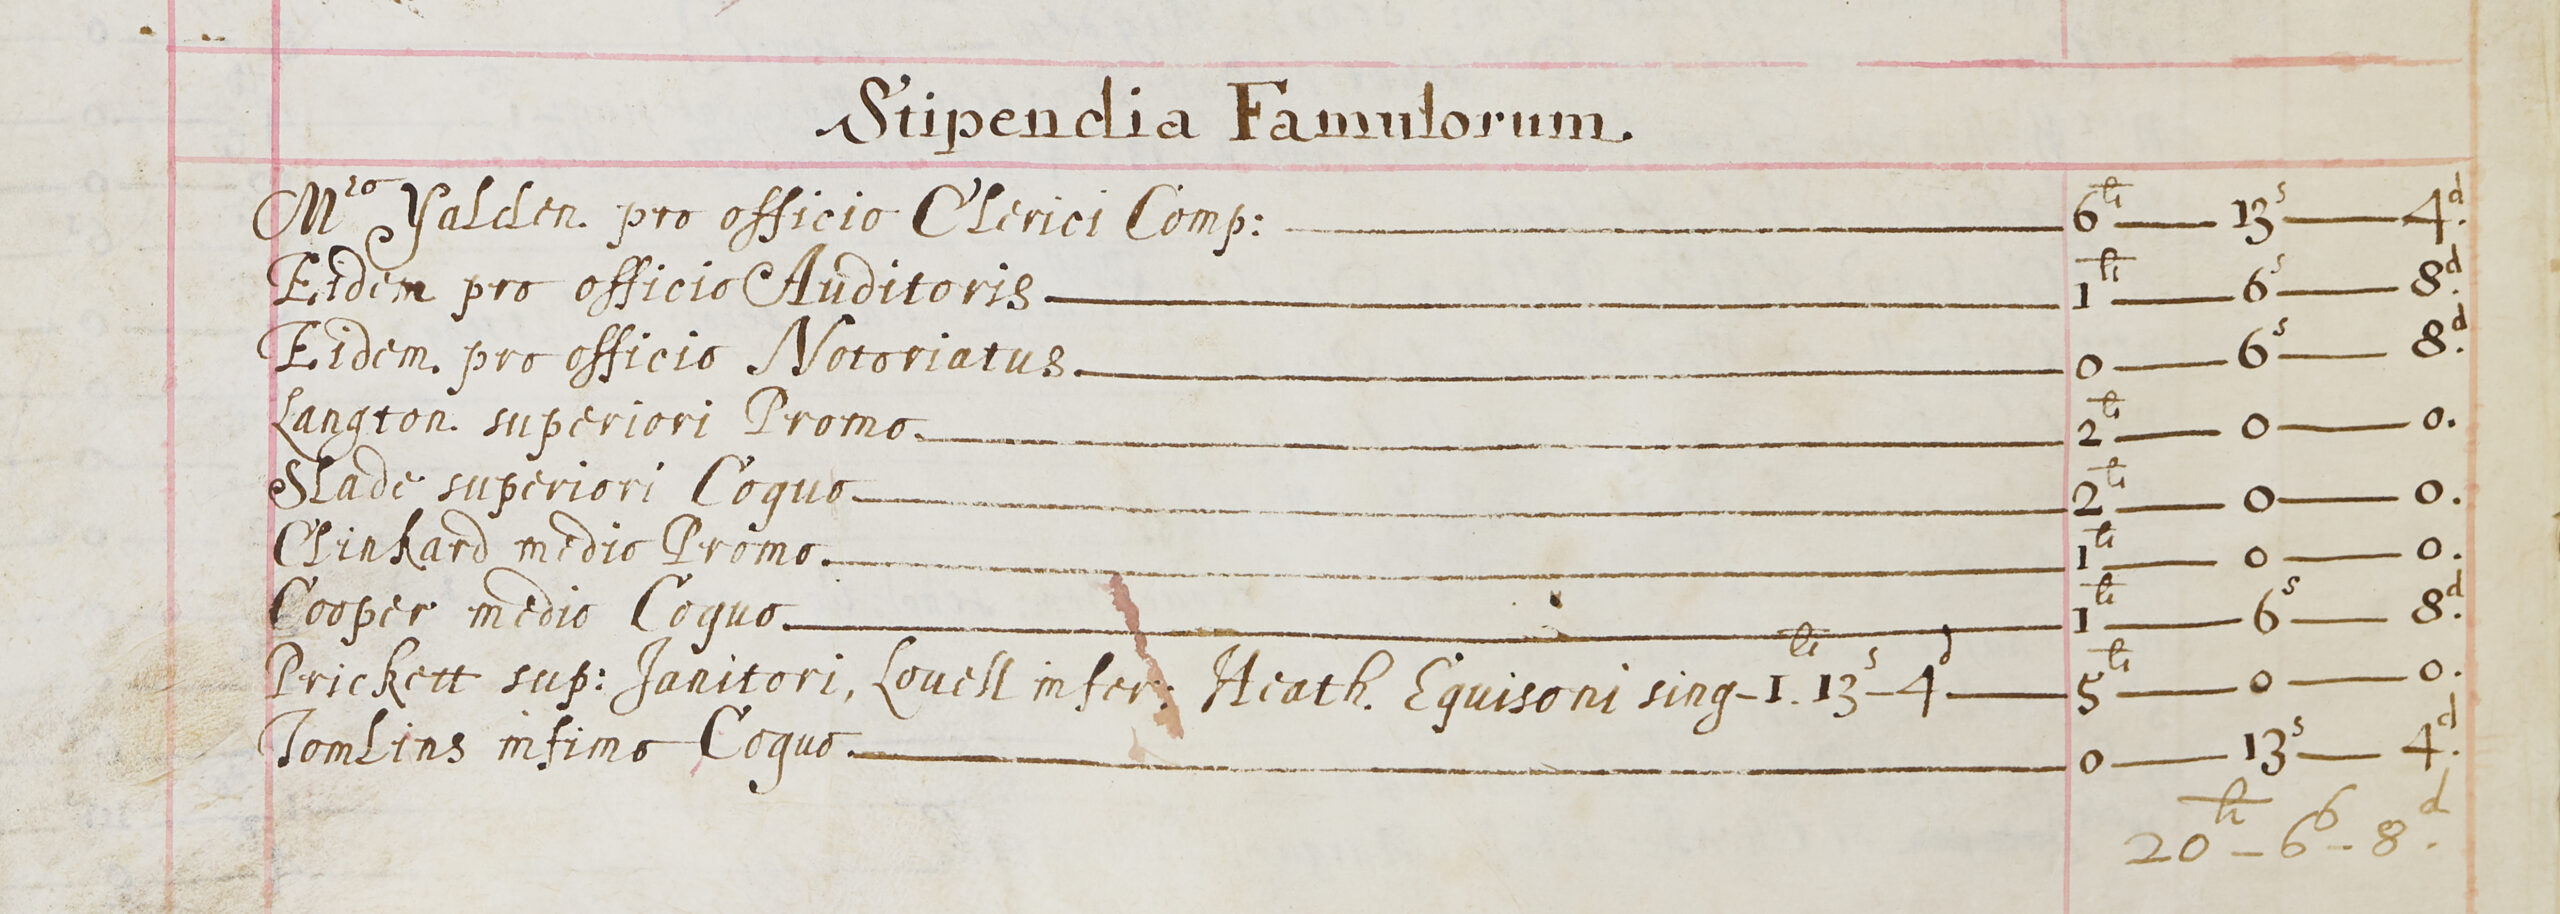 Stipendia Famulorum.
Mro Yalden. pro officio Clerici Comp: 6li 13s 4d.
Eidem pro officio Auditoris 1li 6s 8d.
Eidem. pro officio Notoriatus. 0 6s 8d.
Langton. superiori Promo. 2li 0 0.
Slade superiori Coquo 2li 0 0.
Clinkard medio Promo. 1li 0 0.
Cooper medio Coquo. 1li 6s 8d.
Prickett sup: Janitori, Louell infer: Heath. Equisoni sing-1.li 13s-4d 5li 0 0.
Tomlins infimo Coquo. 0 13s 4d.
20li-6s-8d.